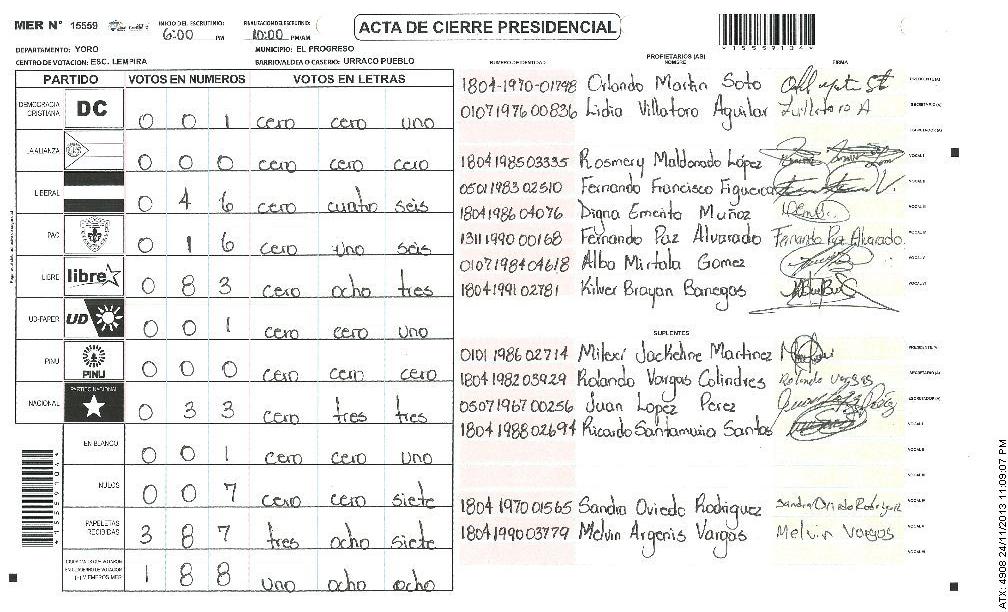 MER N° 15559
INICIO DEL ESCRUTINIO: 6:00 PM
FINALIZACION ESCRUTINIO: 10:00 PM/AM
ACTA DE CIERRE PRESIDENCIAL
15559134
DEPARTAMENTO: YORO
MUNICIPIO: EL PROGRESO
CENTRO DE VOTACION: ESC. LEMPIRA
BARRIO/ALDEA O CASERIO: URRACO PUEBLO
PARTIDO VOTOS EN NUMEROS VOTOS EN LETRAS
DEMOCRACIA CRISTIANA DC 0 0 1 cero cero uno
LA ALIANZA 0 0 0 cero cero cero
LIBERAL 0 4 6 cero cuatro seis
PAC 0 1 6 cero uno seis
LIBRE libre 0 8 3 cero ocho tres
UD-FAPER UD 0 0 1 cero cero uno
PINU PINU 0 0 0 cero cero cero
NACIONAL PARTIDO NACIONAL 0 3 3 cero tres tres
EN BLANCO 0 0 1 cero cero uno
NULOS 0 0 7 cero cero siete
PAPELETAS RECIBIDAS 3 8 7 tres ocho siete
1 8 8 uno ocho ocho
NUMERO DE IDENTIDAD PROPIETARIOS (AS) FIRMA
1804-1970-01798 Orlando Martin Soto
01071976 00836 Lidia Villatoro Aguilar
1804198503335 Rosmery Maldonado López
0501198302510 Fernando Francisco Figueroa
1804198604076 Digna Emerita Muñoz
1311199000168 Fernando Paz Alvarado Fernando Paz Alvarado.
0107198404618 Alba Mirtala Gomez
1804199102781 Kilver Brayan Banegas
SUPLENTES
0101198602714 Milexi Jackeline Martinez
1804198203929 Rolando Vargas Colindres Rolando Vargas
0507196700256 Juan Lopez Perez
1804198802694 Ricardo Santamaria Santos
1804197001565 Sandra Oviedo Rodriguez Sandra Oviedo Rodriguez
1804199003779 Melvin Argenis Vargas Melvin Vargas
ATX: 4908 24/11/2013 11:09:07 PM